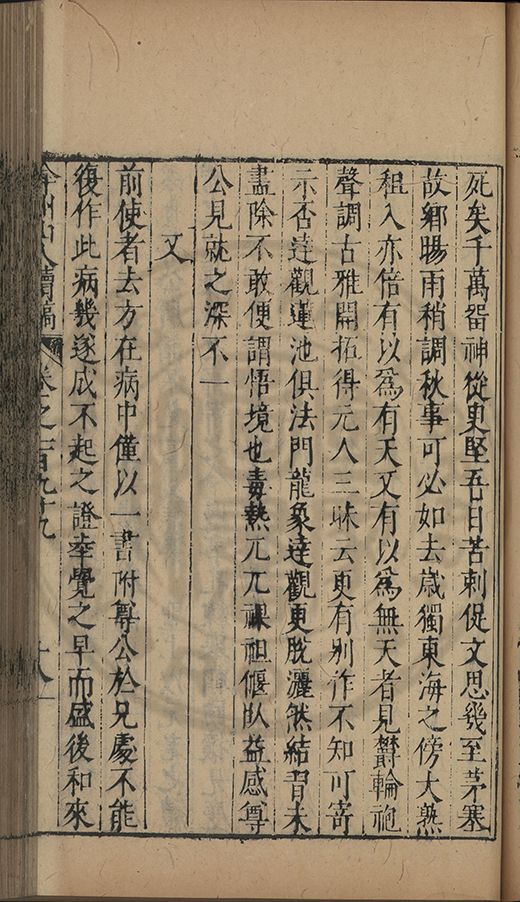 死矣千萬畱神從吏堅吾日苦刺促文思幾至茅塞
故鄉暘雨稍調秋事可必如去歲獨東海之傍大熟
租入亦倍有以爲有天又有以爲無天者見欝輪袍
聲調古雅開拓得元人三昧云更有別作不知可寄
示否達觀蓮池俱法門龍象達觀更脫灑然結習未
盡除不敢便謂悟境也毒熱兀兀祼袒偃臥益感尊
公見就之深不一
又
前使者去方在病中僅以一書附尊公於兄處不能
復作此病幾遂成不起之證幸覺之早而盛後和來
弇州山人續稿 卷之一百九十九 十八